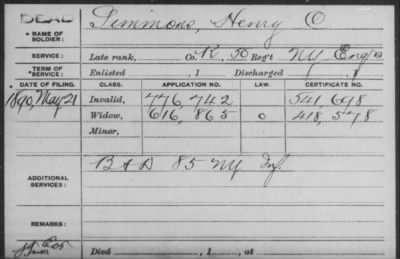 DEAD
*NAME OF SOLDIER: Simmons, Henry O
SERVICE: Late rank, Co. K, 50 Reg't NY Eng'rs
TERM OF SERVICE: Enlisted , 1 Discharged , 1
DATE OF FILING. CLASS. APPLICATION NO. LAW. CERTIFICATE NO.
1890, May 21 Invalid, 776,742 541,698
Widow, 616,865 0 418,578
Minor,
ADDITIONAL SERVICES: B & D 85 NY Inf.
REMARKS:
Died , 1 , at